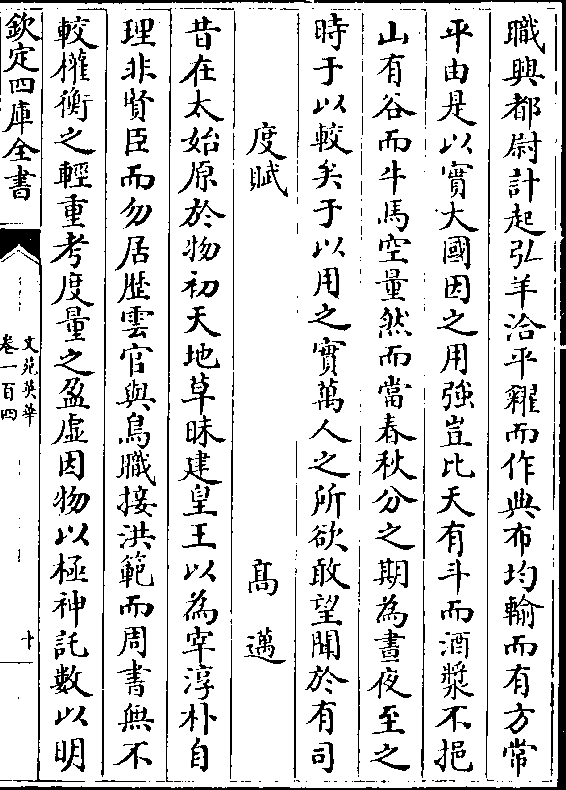 職興都尉計起弘羊洽平糴而作典布均輸而有方常
平由是以實大國因之用強豈比天有斗而酒漿不挹
山有谷而牛馬空量然而當春秋分之期為晝夜至之
時于以較矣于以用之實萬人之所欲敢望聞於有司
度賦　高邁
昔在太始原於物初天地草昧建皇王以為宰淳朴自
理非賢臣而勿居歷雲官與鳥職接洪範而周書無不
較權衡之輕重考度量之盈虛因物以極神託數以明
欽定四庫全書
文苑英華
卷一百四
十